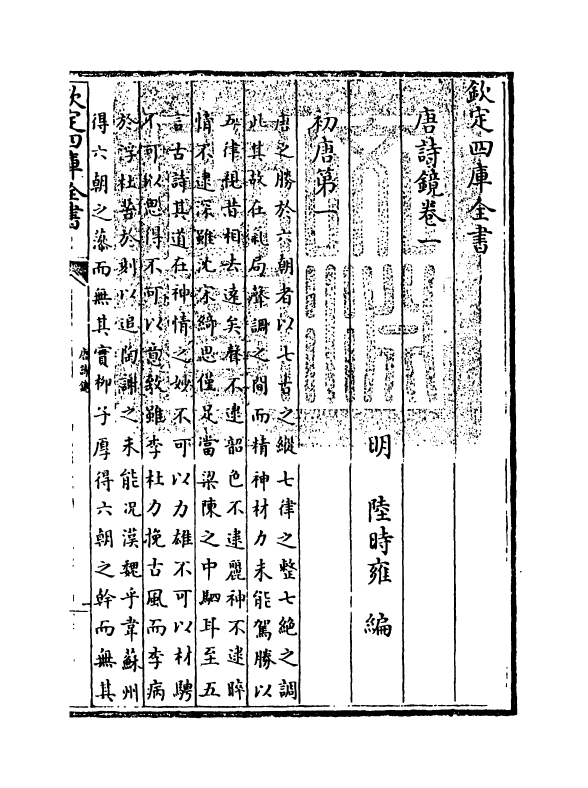 欽定四庫全書
唐詩鏡卷一
明 陸時雍 編
初唐第一
唐之勝於六朝者以七古之縱七律之整七絶之調
此其故在氣局聲調之間而精神材力未能駕勝以
五律視昔相去遠矣聲不逮韶色不逮麗神不逮晬
情不逮深雖沈宋綺思僅足當梁陳之中駟耳至五
言古詩其道在神情之妙不可以力雄不可以材騁
不可以思得不可以意致雖李杜力挽古風而李病
於浮杜苦於則以追陶謝之未能况漢魏乎韋蘇州
得六朝之藻而無其實柳子厚得六朝之幹而無其
欽定四庫全書
唐詩鏡
一